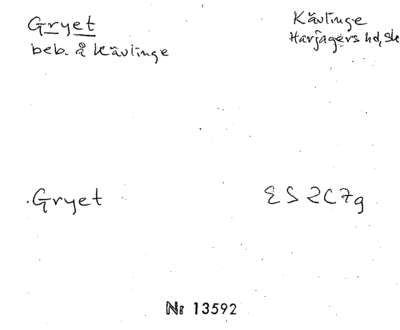 Gryet
beb. å Kävlinge
Kävlinge
Harjagers hd, Sk
Gryet
ES 2C7g
Nr 13592